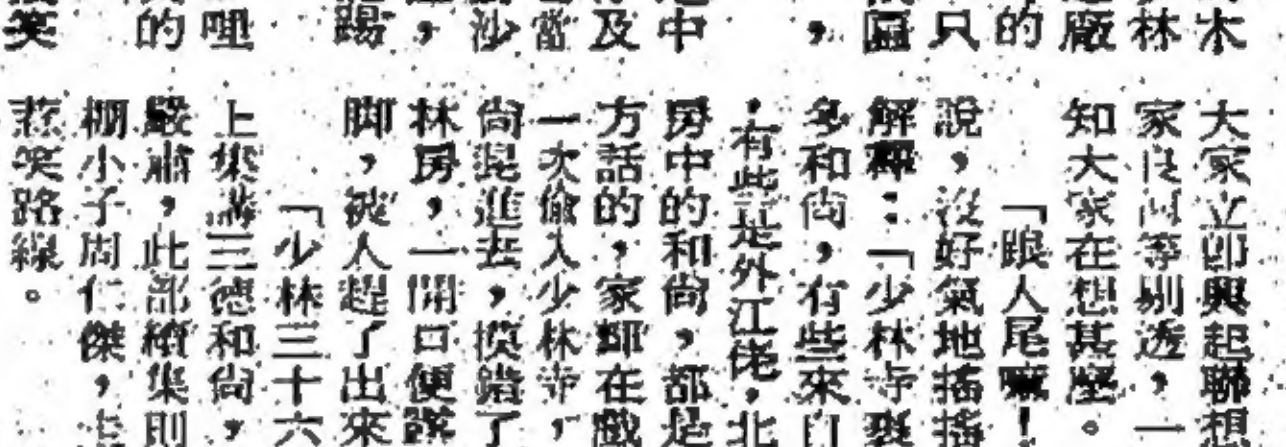 木
林
廠
的
只
，
中
及
當
沙
，
踢
哩
的
笑
大家立卽興起聯想
家良何等剔透，一
知大家在想甚麼。
「跟人尾嘛！
說，沒好氣地搖搖
解釋：「少林寺裏
多和尚，有些來自
，有些是外江佬，北
房中的和尚，都是
方話的，家輝在戲
一次偷入少林寺，
尚混進去，摸錯了
林房，一開口便說
脚，被人趕了出來
「少林三十六
上集講三德和尚，
嚴肅，此部續集則
棚小子周仁傑，走
惹笑路線。